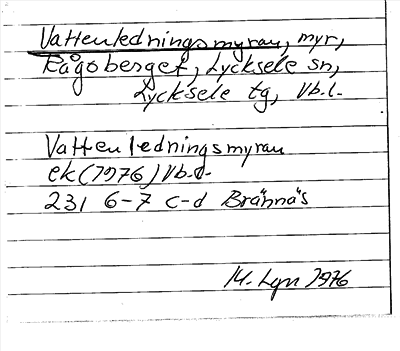 Vattenledningsmyran, myr,
Rågoberget, Lycksele sn,
Lycksele tg, Vb.l.
Vattenledningsmyran
ek (1976) Vb.l.
231 6-7 c-d Brännäs
14. Lgn 1976